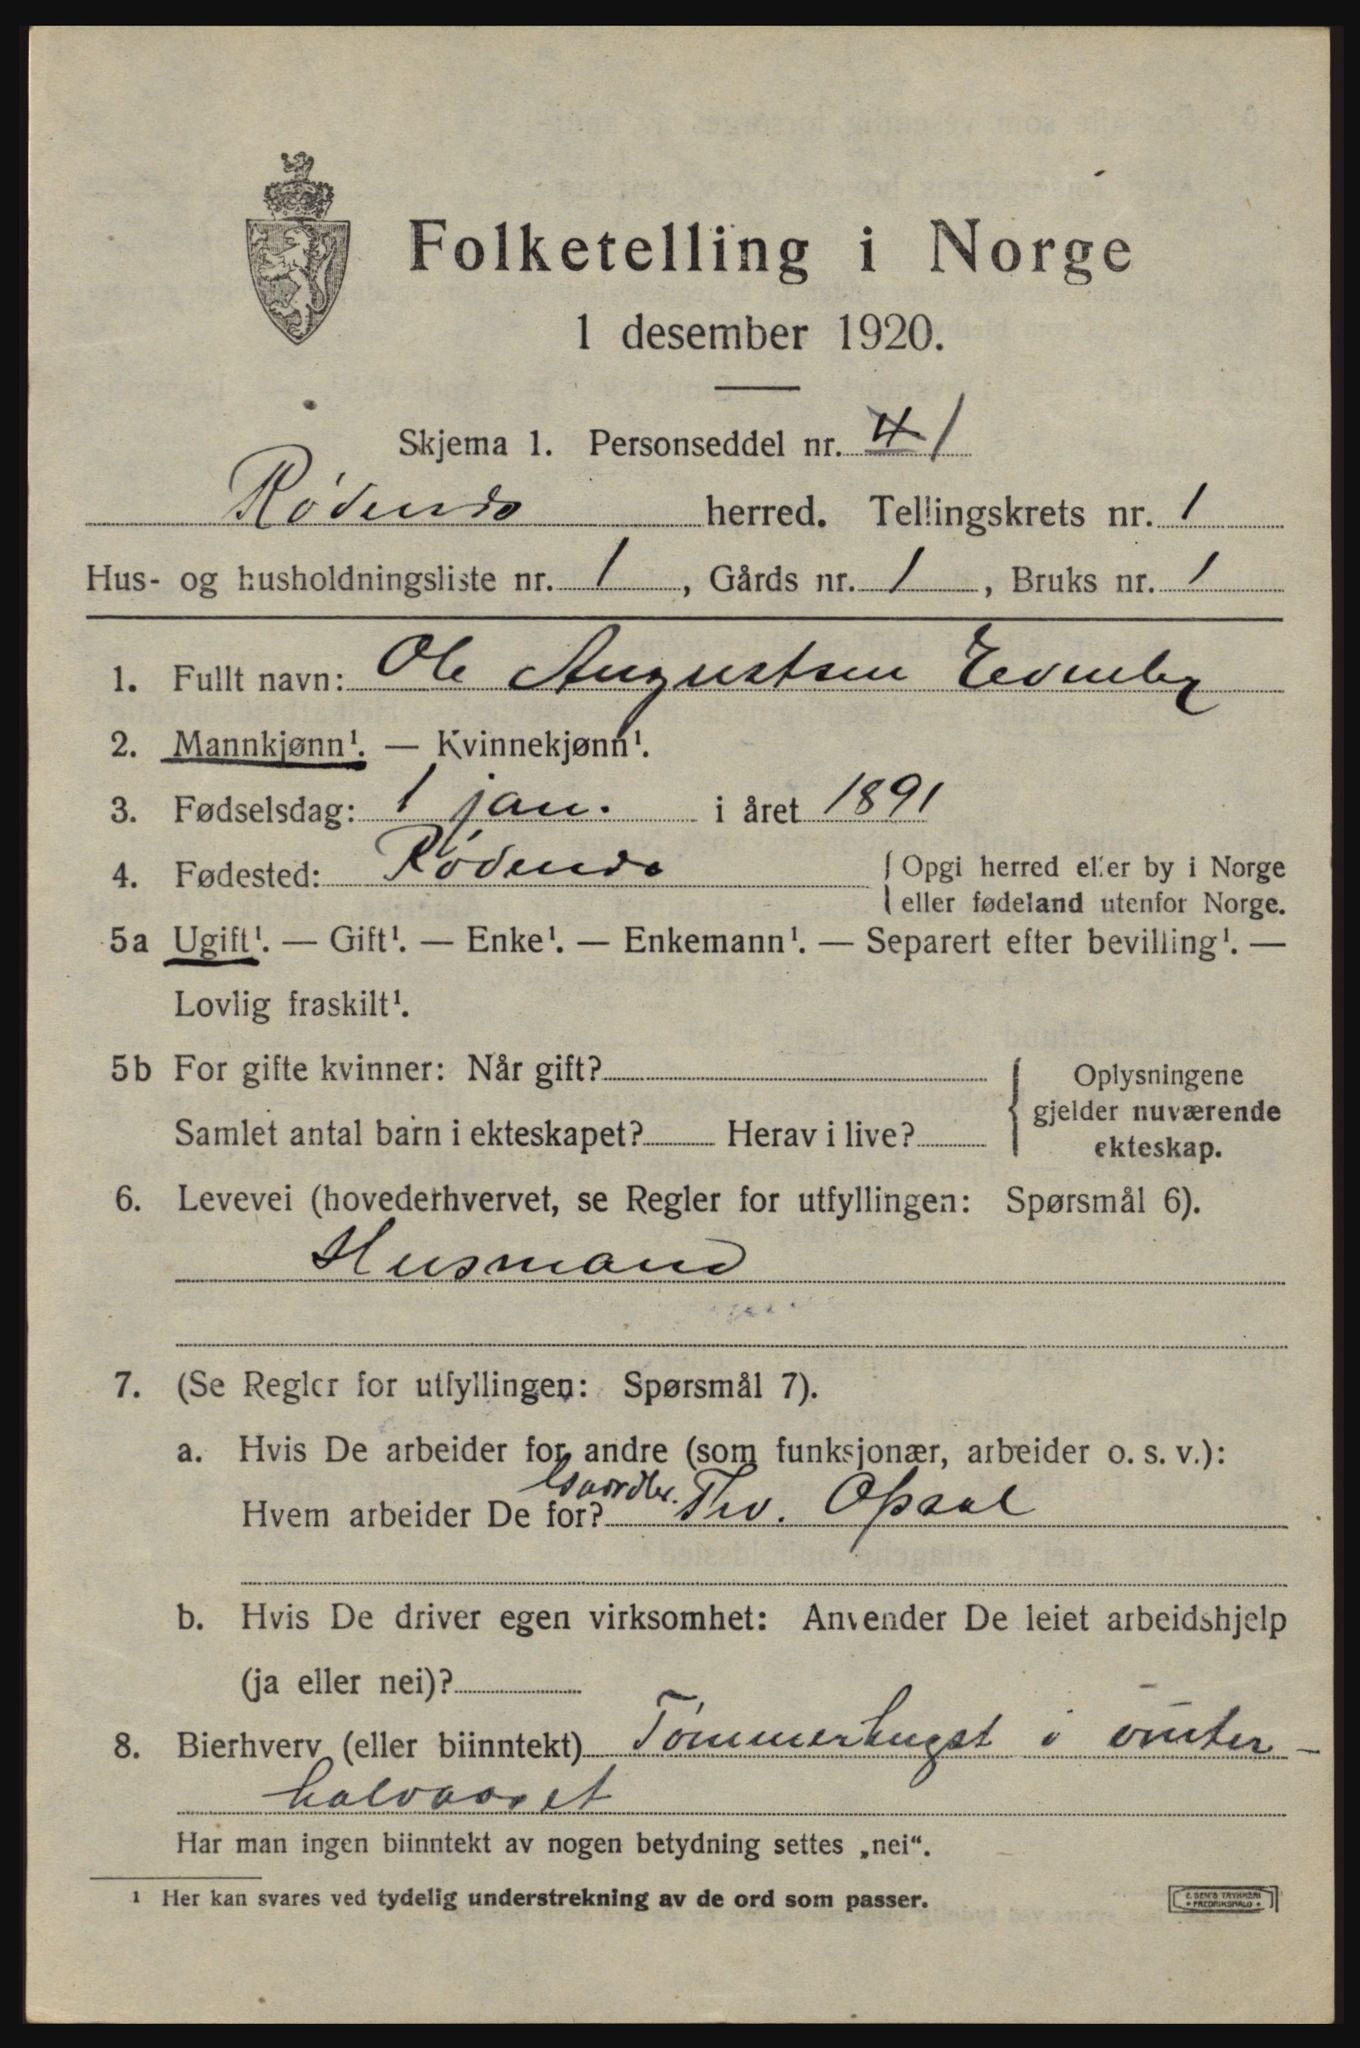 Folketelling i Norge
1 desember 1920.
Skjema 1. Personseddel nr. 4 1
Rødenes herred. Tellingskrets nr. 1
Hus- og husholdningsliste nr. 1, Gårds nr. 1, Bruks nr. 1
1. Fullt navn: Ole Augustsen
2. Mannkjønn¹. — Kvinnekjønn¹.
3. Fødselsdag: 1 jan. i året 1891
4. Fødested: Rødenes { Opgi herred eller by i Norge
eller fødeland utenfor Norge.
5a Ugift¹. — Gift¹. — Enke¹. — Enkemann¹. — Separert efter bevilling¹. —
Lovlig fraskilt¹.
5b For gifte kvinner: Når gift? { Oplysningene
gjelder nuværende
Samlet antal barn i ekteskapet? Herav i live?
ekteskap.
6. Levevei (hovederhvervet, se Regler for utfyllingen: Spørsmål 6).
Husmand
7. (Se Regler for utfyllingen: Spørsmål 7).
a. Hvis De arbeider for andre (som funksjonær, arbeider o. s. v.):
Hvem arbeider De for? Gaardbr. Thv. Opsal
b. Hvis De driver egen virksomhet: Anvender De leiet arbeidshjelp
(ja eller nei)?
8. Bierhverv (eller biinntekt) Tømmerhugst i vinter-
halvaaret
Har man ingen biinntekt av nogen betydning settes „nei“.
¹ Her kan svares ved tydelig understrekning av de ord som passer.
E. SEM'S TRYKKERI
• FREDRIKSHALD •